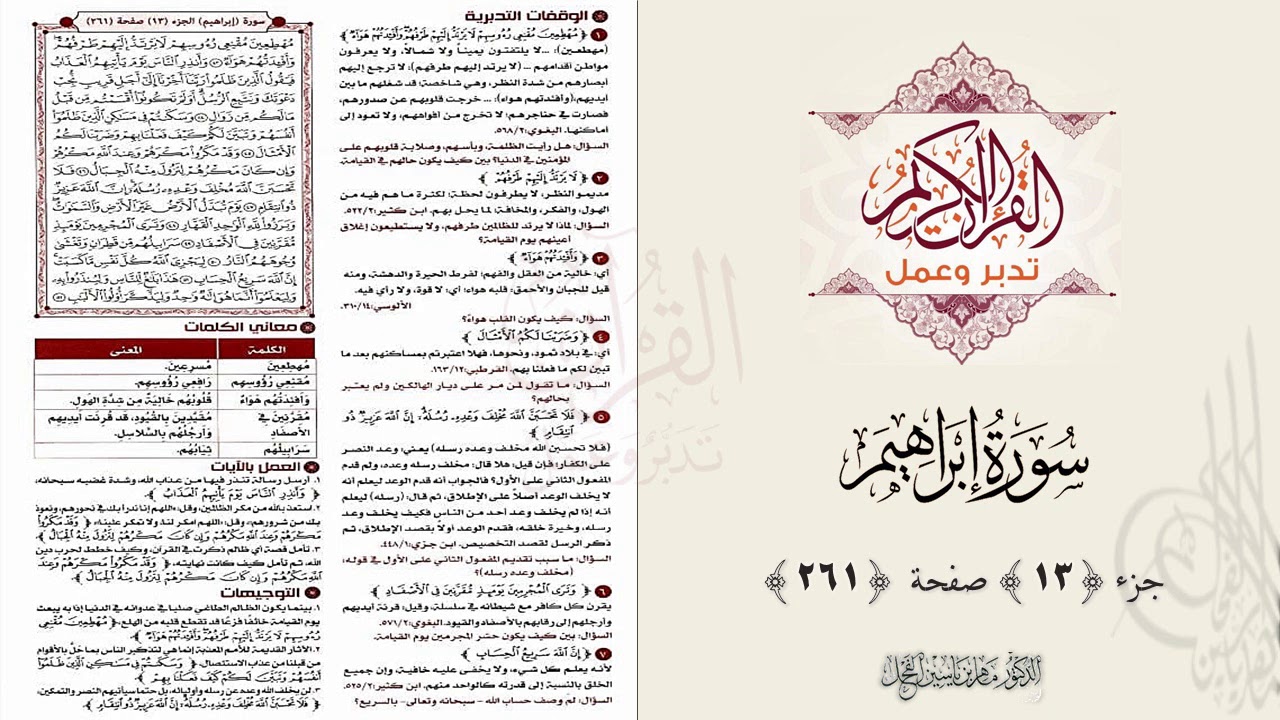 القرآن الكريم
تدبر وعمل
سُورَةُ إِبْرَاهِيمَ
جزء ﴿١٣﴾ صفحة ﴿٢٦١﴾
الدكتور ماهر ياسين الفحل
سورة (إبراهيم) الجزء (١٣) صفحة (٢٦١)
مُهْطِعِينَ مُقْنِعِي رُءُوسِهِمْ لَا يَرْتَدُّ إِلَيْهِمْ طَرْفُهُمْ
وَأَفْئِدَتُهُمْ هَوَاءٌ ٤٣ وَأَنذِرِ النَّاسَ يَوْمَ يَأْتِيهِمُ الْعَذَابُ
فَيَقُولُ الَّذِينَ ظَلَمُوا رَبَّنَا أَخِّرْنَا إِلَىٰ أَجَلٍ قَرِيبٍ نُّجِبْ
دَعْوَتَكَ وَنَتَّبِعِ الرُّسُلَ أَوَلَمْ تَكُونُوا أَقْسَمْتُم مِّن قَبْلُ
مَا لَكُم مِّن زَوَالٍ ٤٤ وَسَكَنتُمْ فِي مَسَاكِنِ الَّذِينَ ظَلَمُوا
أَنفُسَهُمْ وَتَبَيَّنَ لَكُمْ كَيْفَ فَعَلْنَا بِهِمْ وَضَرَبْنَا لَكُمُ
الْأَمْثَالَ ٤٥ وَقَدْ مَكَرُوا مَكْرَهُمْ وَعِندَ اللَّهِ مَكْرُهُمْ
وَإِن كَانَ مَكْرُهُمْ لِتَزُولَ مِنْهُ الْجِبَالُ ٤٦ فَلَا
تَحْسَبَنَّ اللَّهَ مُخْلِفَ وَعْدِهِ رُسُلَهُ إِنَّ اللَّهَ عَزِيزٌ
ذُو انتِقَامٍ ٤٧ يَوْمَ تُبَدَّلُ الْأَرْضُ غَيْرَ الْأَرْضِ وَالسَّمَاوَاتُ
وَبَرَزُوا لِلَّهِ الْوَاحِدِ الْقَهَّارِ ٤٨ وَتَرَى الْمُجْرِمِينَ يَوْمَئِذٍ
مُّقَرَّنِينَ فِي الْأَصْفَادِ ٤٩ سَرَابِيلُهُم مِّن قَطِرَانٍ وَتَغْشَىٰ
وُجُوهَهُمُ النَّارُ ٥٠ لِيَجْزِيَ اللَّهُ كُلَّ نَفْسٍ مَّا كَسَبَتْ
إِنَّ اللَّهَ سَرِيعُ الْحِسَابِ ٥١ هَٰذَا بَلَاغٌ لِّلنَّاسِ وَلِيُنذَرُوا بِهِ
وَلِيَعْلَمُوا أَنَّمَا هُوَ إِلَٰهٌ وَاحِدٌ وَلِيَذَّكَّرَ أُولُو الْأَلْبَابِ ٥٢
معاني الكلمات
الكلمة المعنى
مُهْطِعِينَ مُسرِعِينَ.
مُقْنِعِي رُؤُوسِهِم رَافِعِي رُؤُوسِهِم.
وَأَفْئِدَتُهُم هَوَاءٌ قُلُوبُهُم خَالِيَةٌ مِن شِدَّةِ الهَولِ.
مُقَرَّنِينَ فِي الأَصفَادِ مُقَيَّدِينَ بِالقُيُودِ، قَد قُرِنَت أَيدِيهِم
وَأَرجُلُهُم بِالسَّلَاسِلِ.
سَرَابِيلُهُم ثِيَابُهُم.
العمل بالآيات
١. أرسل رسالة تنذر فيها من عذاب الله، وشدة غضبه سبحانه،
﴿وَأَنذِرِ النَّاسَ يَوْمَ يَأْتِيهِمُ الْعَذَابُ﴾
٢. استعذ بالله من مكر الظالمين، وقل: «اللهم إنا ندرأ بك في نحورهم، ونعوذ
بك من شرورهم» وقل: «اللهم امكر لنا، ولا تمكر علينا»، ﴿وَقَدْ مَكَرُوا
مَكْرَهُمْ وَعِندَ اللَّهِ مَكْرُهُمْ وَإِن كَانَ مَكْرُهُمْ لِتَزُولَ مِنْهُ الْجِبَالُ﴾
٣. تأمل قصة أي ظالم ذكرت في القرآن، وكيف خطط لحرب دين
الله، ثم تأمل كيف كانت نهايته، ﴿وَقَدْ مَكَرُوا مَكْرَهُمْ وَعِندَ
اللَّهِ مَكْرُهُمْ وَإِن كَانَ مَكْرُهُمْ لِتَزُولَ مِنْهُ الْجِبَالُ﴾
التوجيهات
١. بينما يكون الظالم الطاغي صلبا في عدوانه في الدنيا إذا به يبعث
يوم القيامة خائفاً فزعاً قد تقطع قلبه من الهلع، ﴿مُهْطِعِينَ مُقْنِعِي
رُءُوسِهِمْ لَا يَرْتَدُّ إِلَيْهِمْ طَرْفُهُمْ وَأَفْئِدَتُهُمْ هَوَاءٌ﴾
٢. الآثار القديمة للأمم المعذبة إنما هي لتذكير الناس بما حل بالأقوام
من قبلنا من عذاب الاستئصال، ﴿وَسَكَنتُمْ فِي مَسَاكِنِ الَّذِينَ ظَلَمُوا
أَنفُسَهُمْ وَتَبَيَّنَ لَكُمْ كَيْفَ فَعَلْنَا بِهِمْ﴾
٣. لن يخلف الله وعده عن رسله وأوليائه، بل حتما سيأتيهم النصر والتمكين،
﴿فَلَا تَحْسَبَنَّ اللَّهَ مُخْلِفَ وَعْدِهِ رُسُلَهُ إِنَّ اللَّهَ عَزِيزٌ ذُو انتِقَامٍ﴾
الوقفات التدبرية
١ ﴿مُهْطِعِينَ مُقْنِعِي رُءُوسِهِمْ لَا يَرْتَدُّ إِلَيْهِمْ طَرْفُهُمْ وَأَفْئِدَتُهُمْ هَوَاءٌ﴾
(مهطعين): ...لا يلتفتون يميناً ولا شمالاً، ولا يعرفون
مواطن أقدامهم ... (لا يرتد إليهم طرفهم): لا ترجع إليهم
أبصارهم من شدة النظر، وهي شاخصة؛ قد شغلهم ما بين
أيديهم،(وأفئدتهم هواء): ... خرجت قلوبهم عن صدورهم،
فصارت في حناجرهم؛ لا تخرج من أفواههم، ولا تعود إلى
أماكنها. البغوي:٥٦٨/٢.
السؤال: هل رأيت الظلمة، وبأسهم، وصلابة قلوبهم على
المؤمنين في الدنيا؟ بين كيف يكون حالهم في القيامة.
٢ ﴿لَا يَرْتَدُّ إِلَيْهِمْ طَرْفُهُمْ﴾
مديمو النظر، لا يطرفون لحظة؛ لكثرة ما هم فيه من
الهول، والفكر، والمخافة؛ لما يحل بهم. ابن كثير:٥٢٢/٢.
السؤال: لماذا لا يرتد للظالمين طرفهم، ولا يستطيعون إغلاق
أعينهم يوم القيامة؟
٣ ﴿وَأَفْئِدَتُهُمْ هَوَاءٌ﴾
أي: خالية من العقل والفهم؛ لفرط الحيرة والدهشة، ومنه
قيل للجبان والأحمق: قلبه هواء؛ أي: لا قوة، ولا رأي فيه.
الألوسي:٣١٠/١٤.
السؤال: كيف يكون القلب هواءً؟
٤ ﴿وَضَرَبْنَا لَكُمُ الْأَمْثَالَ﴾
أي: في بلاد ثمود، ونحوها، فهلا اعتبرتم بمساكنهم بعد ما
تبين لكم ما فعلنا بهم. القرطبي:١٦٣/١٢.
السؤال: ما تقول لمن مر على ديار الهالكين ولم يعتبر
بحالهم؟
٥ ﴿فَلَا تَحْسَبَنَّ اللَّهَ مُخْلِفَ وَعْدِهِ رُسُلَهُ إِنَّ اللَّهَ عَزِيزٌ ذُو
انتِقَامٍ﴾
(فلا تحسبن الله مخلف وعده رسله) يعني: وعد النصر
على الكفار؛ فإن قيل: هلا قال: مخلف رسله وعده، ولم قدم
المفعول الثاني على الأول؟ فالجواب أنه قدم الوعد ليعلم أنه
لا يخلف الوعد أصلاً على الإطلاق، ثم قال: (رسله) ليعلم
أنه إذا لم يخلف وعد أحد من الناس فكيف يخلف وعد
رسله، وخيرة خلقه، فقدم الوعد أولاً بقصد الإطلاق، ثم
ذكر الرسل لقصد التخصيص. ابن جزي:٤٤٨/١.
السؤال: ما سبب تقديم المفعول الثاني على الأول في قوله:
(مخلف وعده رسله)؟
٦ ﴿وَتَرَى الْمُجْرِمِينَ يَوْمَئِذٍ مُّقَرَّنِينَ فِي الْأَصْفَادِ﴾
يقرن كل كافر مع شيطانه في سلسلة، وقيل: قرنت أيديهم
وأرجلهم إلى رقابهم بالأصفاد والقيود. البغوي:٥٧١/٢.
السؤال: بين كيف يكون حشر المجرمين يوم القيامة.
٧ ﴿إِنَّ اللَّهَ سَرِيعُ الْحِسَابِ﴾
لأنه يعلم كل شيء، ولا يخفى عليه خافية، وإن جميع
الخلق بالنسبة إلى قدرته كالواحد منهم. ابن كثير:٥٢٥/٢.
السؤال: لم وصف حساب الله - سبحانه وتعالى- بالسريع؟